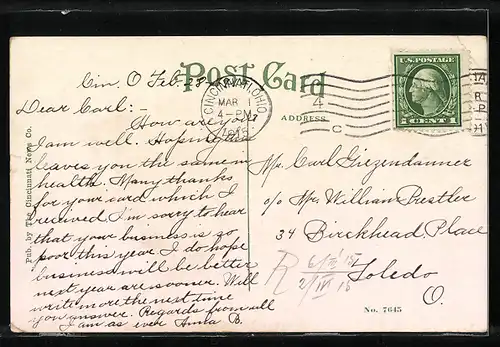 Post Card
Cin. O Feb. 28
Dear Carl:-
How are you
I am well. Hoping this
leaves you the same in
health. Many thanks
for your card which I
received. I'm sorry to hear
that your business is so
poor this year. I do hope
business will be better
next year are sooner. Will
write more the next time
you answer. Regards from all
I am as ever Anna B.
CINCINNATI, OHIO
MAR 1
4-PM
4
C
ADDRESS
U.S. POSTAGE
1 CENT
Mr. Carl Giezendanner
c/o Mr. William Prestler
34 Birckhead Place
Toledo
O.
R
No. 7645
Pub. by The Cincinnati News Co.